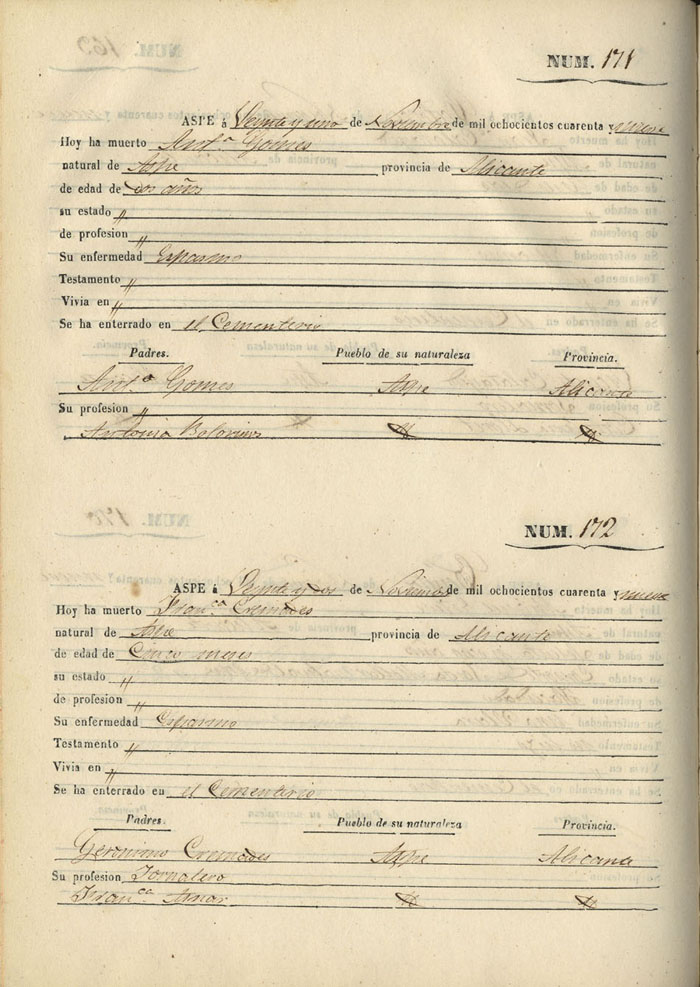 NUM. 171
ASPE á Veinte y uno de Noviembre de mil ochocientos cuarenta y nueve
Hoy ha muerto Antª Gomes
natural de Aspe provincia de Alicante
de edad de dos años
su estado "
de profesion "
Su enfermedad Espasmo
Testamento "
Vivia en "
Se ha enterrado en el Cementerio
Padres. Pueblo de su naturaleza Provincia.
Antº Gomes Aspe Alicante
Su profesion "
Antonia "  "
NUM. 172
ASPE á Veynte y dos de Novimbre de mil ochocientos cuarenta y nueve
Hoy ha muerto Franca Cremades
natural de Aspe provincia de Alicante
de edad de Cinco meses
su estado "
de profesion "
Su enfermedad Espasmo
Testamento "
Vivia en "
Se ha enterrado en el Cementario
Padres. Pueblo de su naturaleza Provincia.
Geronimo Cremades Aspe Alicana
Su profesion Jornalero
Franca Aznar " "